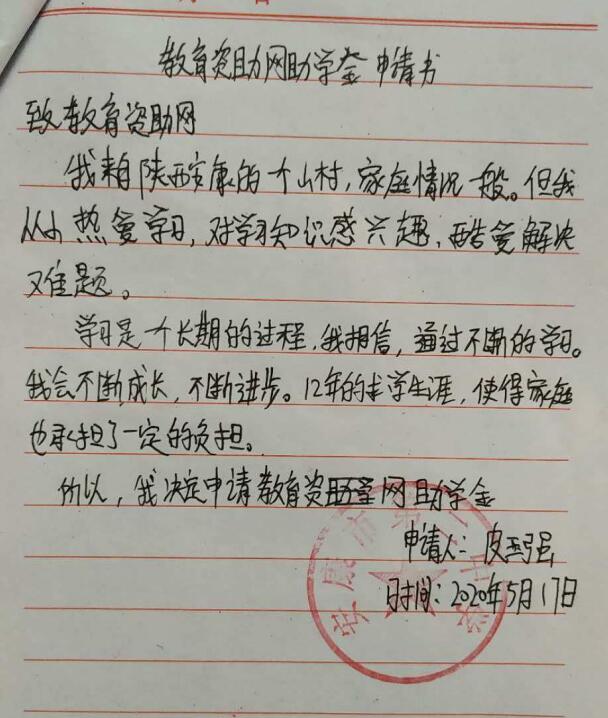 教育资助网助学金申请书
致教育资助网
我来自陕西安康的一个山村,家庭情况一般。但我
从小热爱学习,对学习知识感兴趣,酷爱解决
难题。
学习是一个长期的过程,我相信,通过不断的学习。
我会不断成长,不断进步。12年的求学生涯,使得家庭
也承担了一定的负担。
所以,我决定申请教育资助网助学金
申请人:皮
时间:2020年5月17日
安康市第二中学